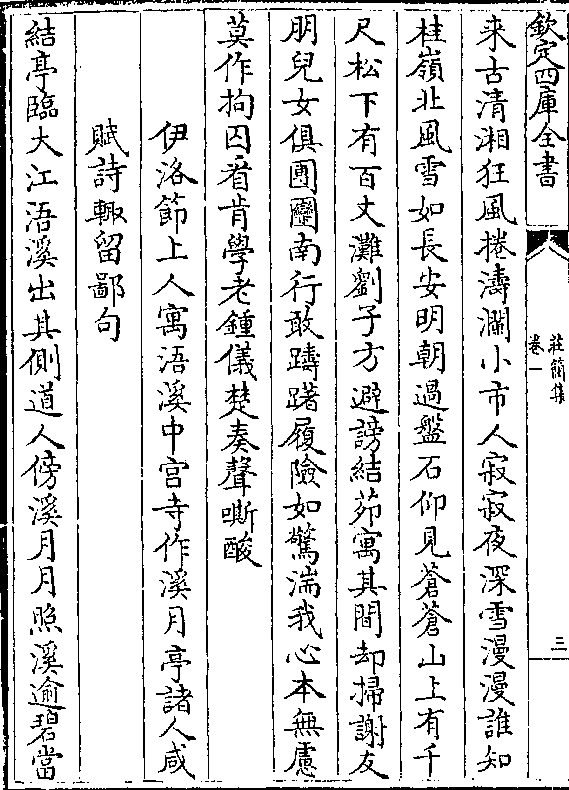 欽定四庫全書
莊簡集
卷一
三
来古清湘狂風捲濤瀾小市人寂寂夜深雪漫漫誰知
桂嶺北風雪如長安明朝過盤石仰見蒼蒼山上有千
尺松下有百丈灘劉子方避謗結茆寓其間却掃謝友
朋兒女俱團圞南行敢躊躇履險如驚湍我心本無慮
莫作拘囚看肯學老鍾儀楚奏聲嘶酸
伊洛節上人寓浯溪中宮寺作溪月亭諸人咸
賦詩輙留鄙句
結亭臨大江浯溪出其側道人傍溪月月照溪逾碧當